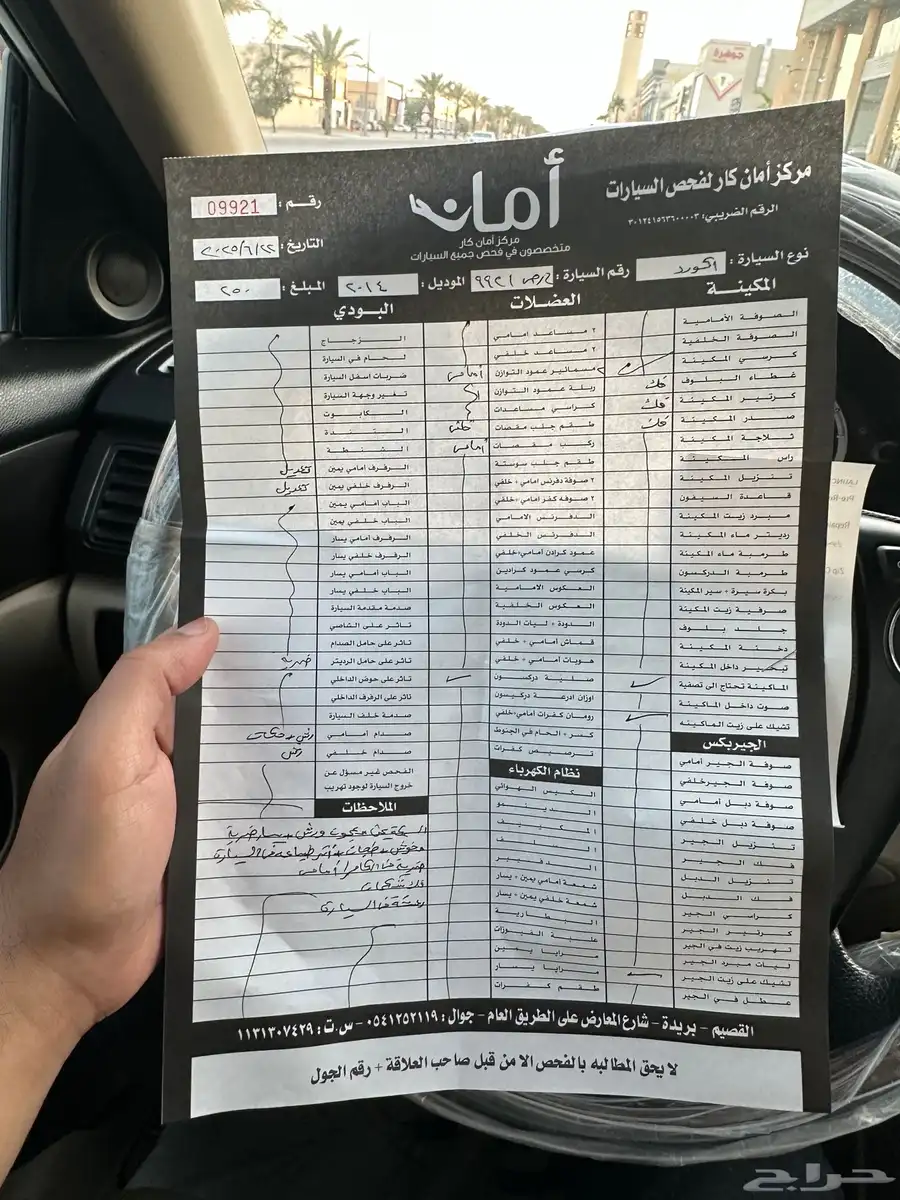 مركز أمان كار لفحص السيارات
الرقم الضريبي: ٣٠١٢٤١٥٦٣٦٠٠٠٠٣
أمان
مركز أمان كار
متخصصون في فحص جميع السيارات
رقم : 09921
التاريخ : ٢٠٢٥/٦/٢٢
نوع السيارة : اكورد
رقم السيارة : ٩٩٢١
الموديل : ٢٠١٤
المبلغ : ٢٥٠
المكينة
الصوفة الأمامية
الصوفة الخلفية
كرسي المكينة
غطاء البلوف فك
كرتير المكينة فك
صدر المكينة فك
ثلاجة المكينة
راس المكينة
تنزيل المكينة
قاعدة السيفون
مبرد زيت المكينة
رديتر ماء المكينة
طرمبة ماء المكينة
طرمبة الدركسون
بكرة سيرة + سير المكينة
صرفية زيت المكينة
جلد بلوف
دخنة المكينة
تبخير داخل المكينة
الماكينة تحتاج الى تصفية
صوت داخل الماكينة
تشيك على زيت الماكينه
الجيربكس
صوفة الجير أمامي
صوفة الجيرخلفي
صوفة دبل أمامي
صوفة دبل خلفي
تنزيل الجير
فك الجير
تنزيل الدبل
فك الدبل
كراسي الجير
كرتير الجير
تهريب زيت في الجير
ليات مبرد الجير
تشيك على زيت الجير
عطل في الجير
العضلات
٢ مساعد امامي
٢ مساعد خلفي
٢ مسامير عمود التوازن أمامي
ربلة عمود التوازن
كراسي مساعدات
طقم جلب مقصات خلفي
ركب مقصات أمامي
طقم جلب سوستة
٢ صوفة دفرنس أمامي + خلفي
٢ صوفة كفر امامي + خلفي
الدفرنس الامامي
الدفرنس الخلفي
عمود كرادن امامي+خلفي
كرسي عمود كرادين
العكوس الامامية
العكوس الخلفية
الدودة + ليات الدودة
قماش أمامي + خلفي
هوبات أمامي + خلفي
صلنية دركسون
اوزان اذرعة دركيسون
رومان كفرات امامي+خلفي
كسر + الحام في الجنوط
ترصيص كفرات
نظام الكهرباء
الكيس الهوائي
الدينمو
المكييف
السلف
الدفيير
شمعة أمامي يمين + يسار
شمعة خلفي يمين + يسار
البطارية
علبة الفيوزات
مرايا يمين
مرايا يسار
طقم كفرات
البودي
الزجاج
لحام في السيارة
ضربات اسفل السيارة
تغير وجهة السيارة
الكابوت
التندة
الشنطة
الرفرف امامي يمين تعديل
الرفرف خلفي يمين تعديل
الباب امامي يمين
الباب خلفي يمين
الرفرف أمامي يسار
الرفرف خلفي يسار
الباب امامي يسار
الباب خلفي يسار
صدمة مقدمة السيارة
تاثر على الشاصي
تاثر على حامل الصدام
تاثر على حامل الرديتر ضربه
تاثر على حوض الداخلي
تاثر على الرفرف الداخلي
صدمة خلف السيارة
صدام أمامي رش + حكات
صدام خلفي رش
الفحص غير مسؤل عن
خروج السيارة لوجود تهريب
الملاحظات
القصيم - بريدة - شارع المعارض على الطريق العام - جوال : ٠٥٤١٢٥٢١١٩ - س.ت : ١١٣١٣٠٧٤٢٩
لا يحق المطالبه بالفحص الا من قبل صاحب العلاقة + رقم الجول
جوهرة
حراج